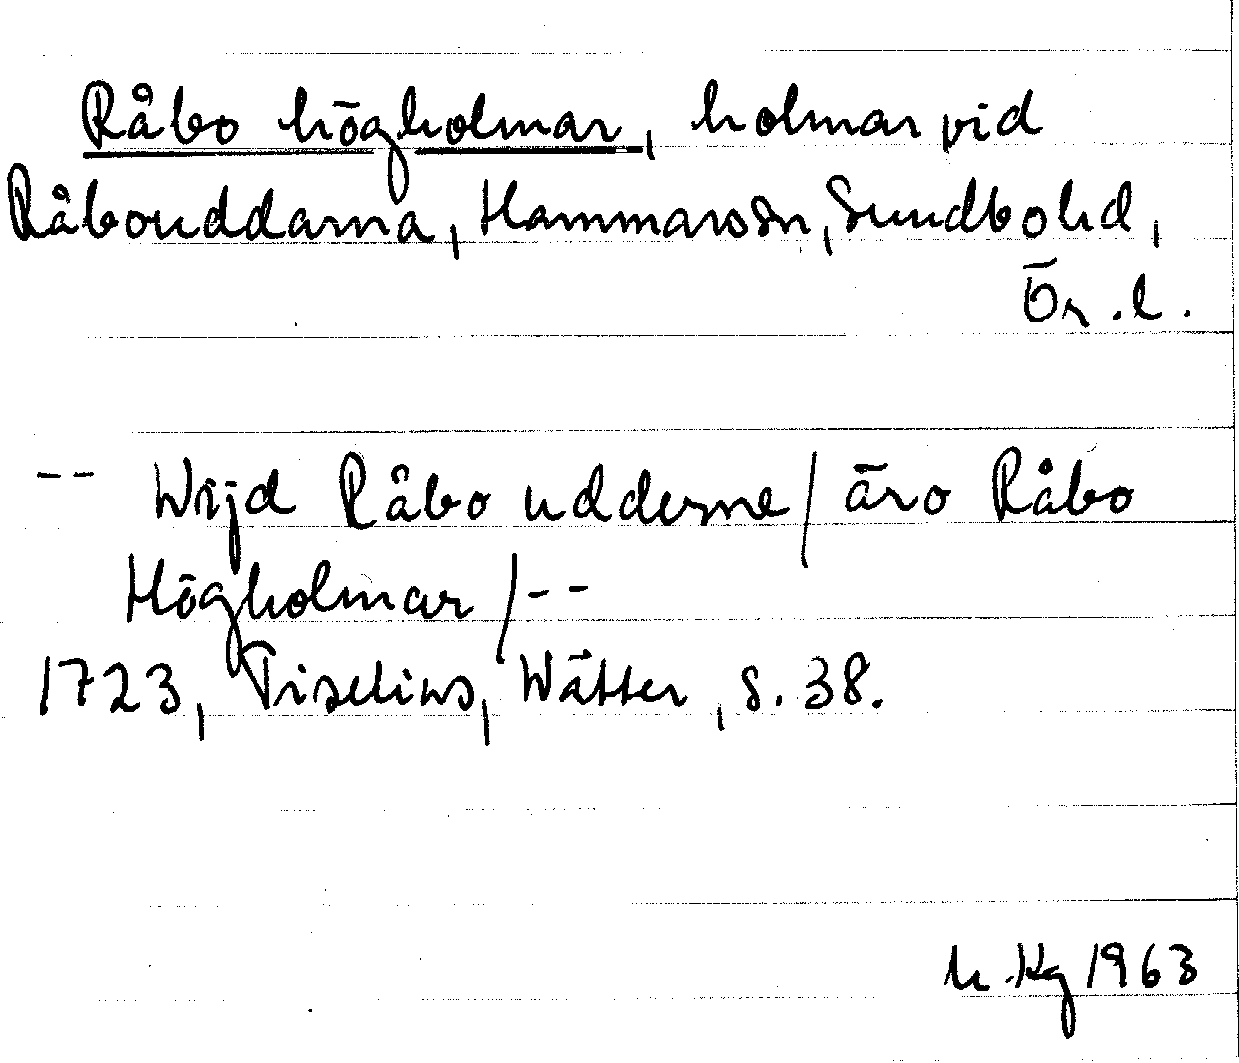 Råbo högholmar, holmar vid
Råbouddarna, Hammarssn, Sundbohd,
Ör.l.
-- Wijd Råbo udderne/ äro Råbo
Högholmar /--
1723, Tiselius, Wätter, s. 38.
Kg 1963